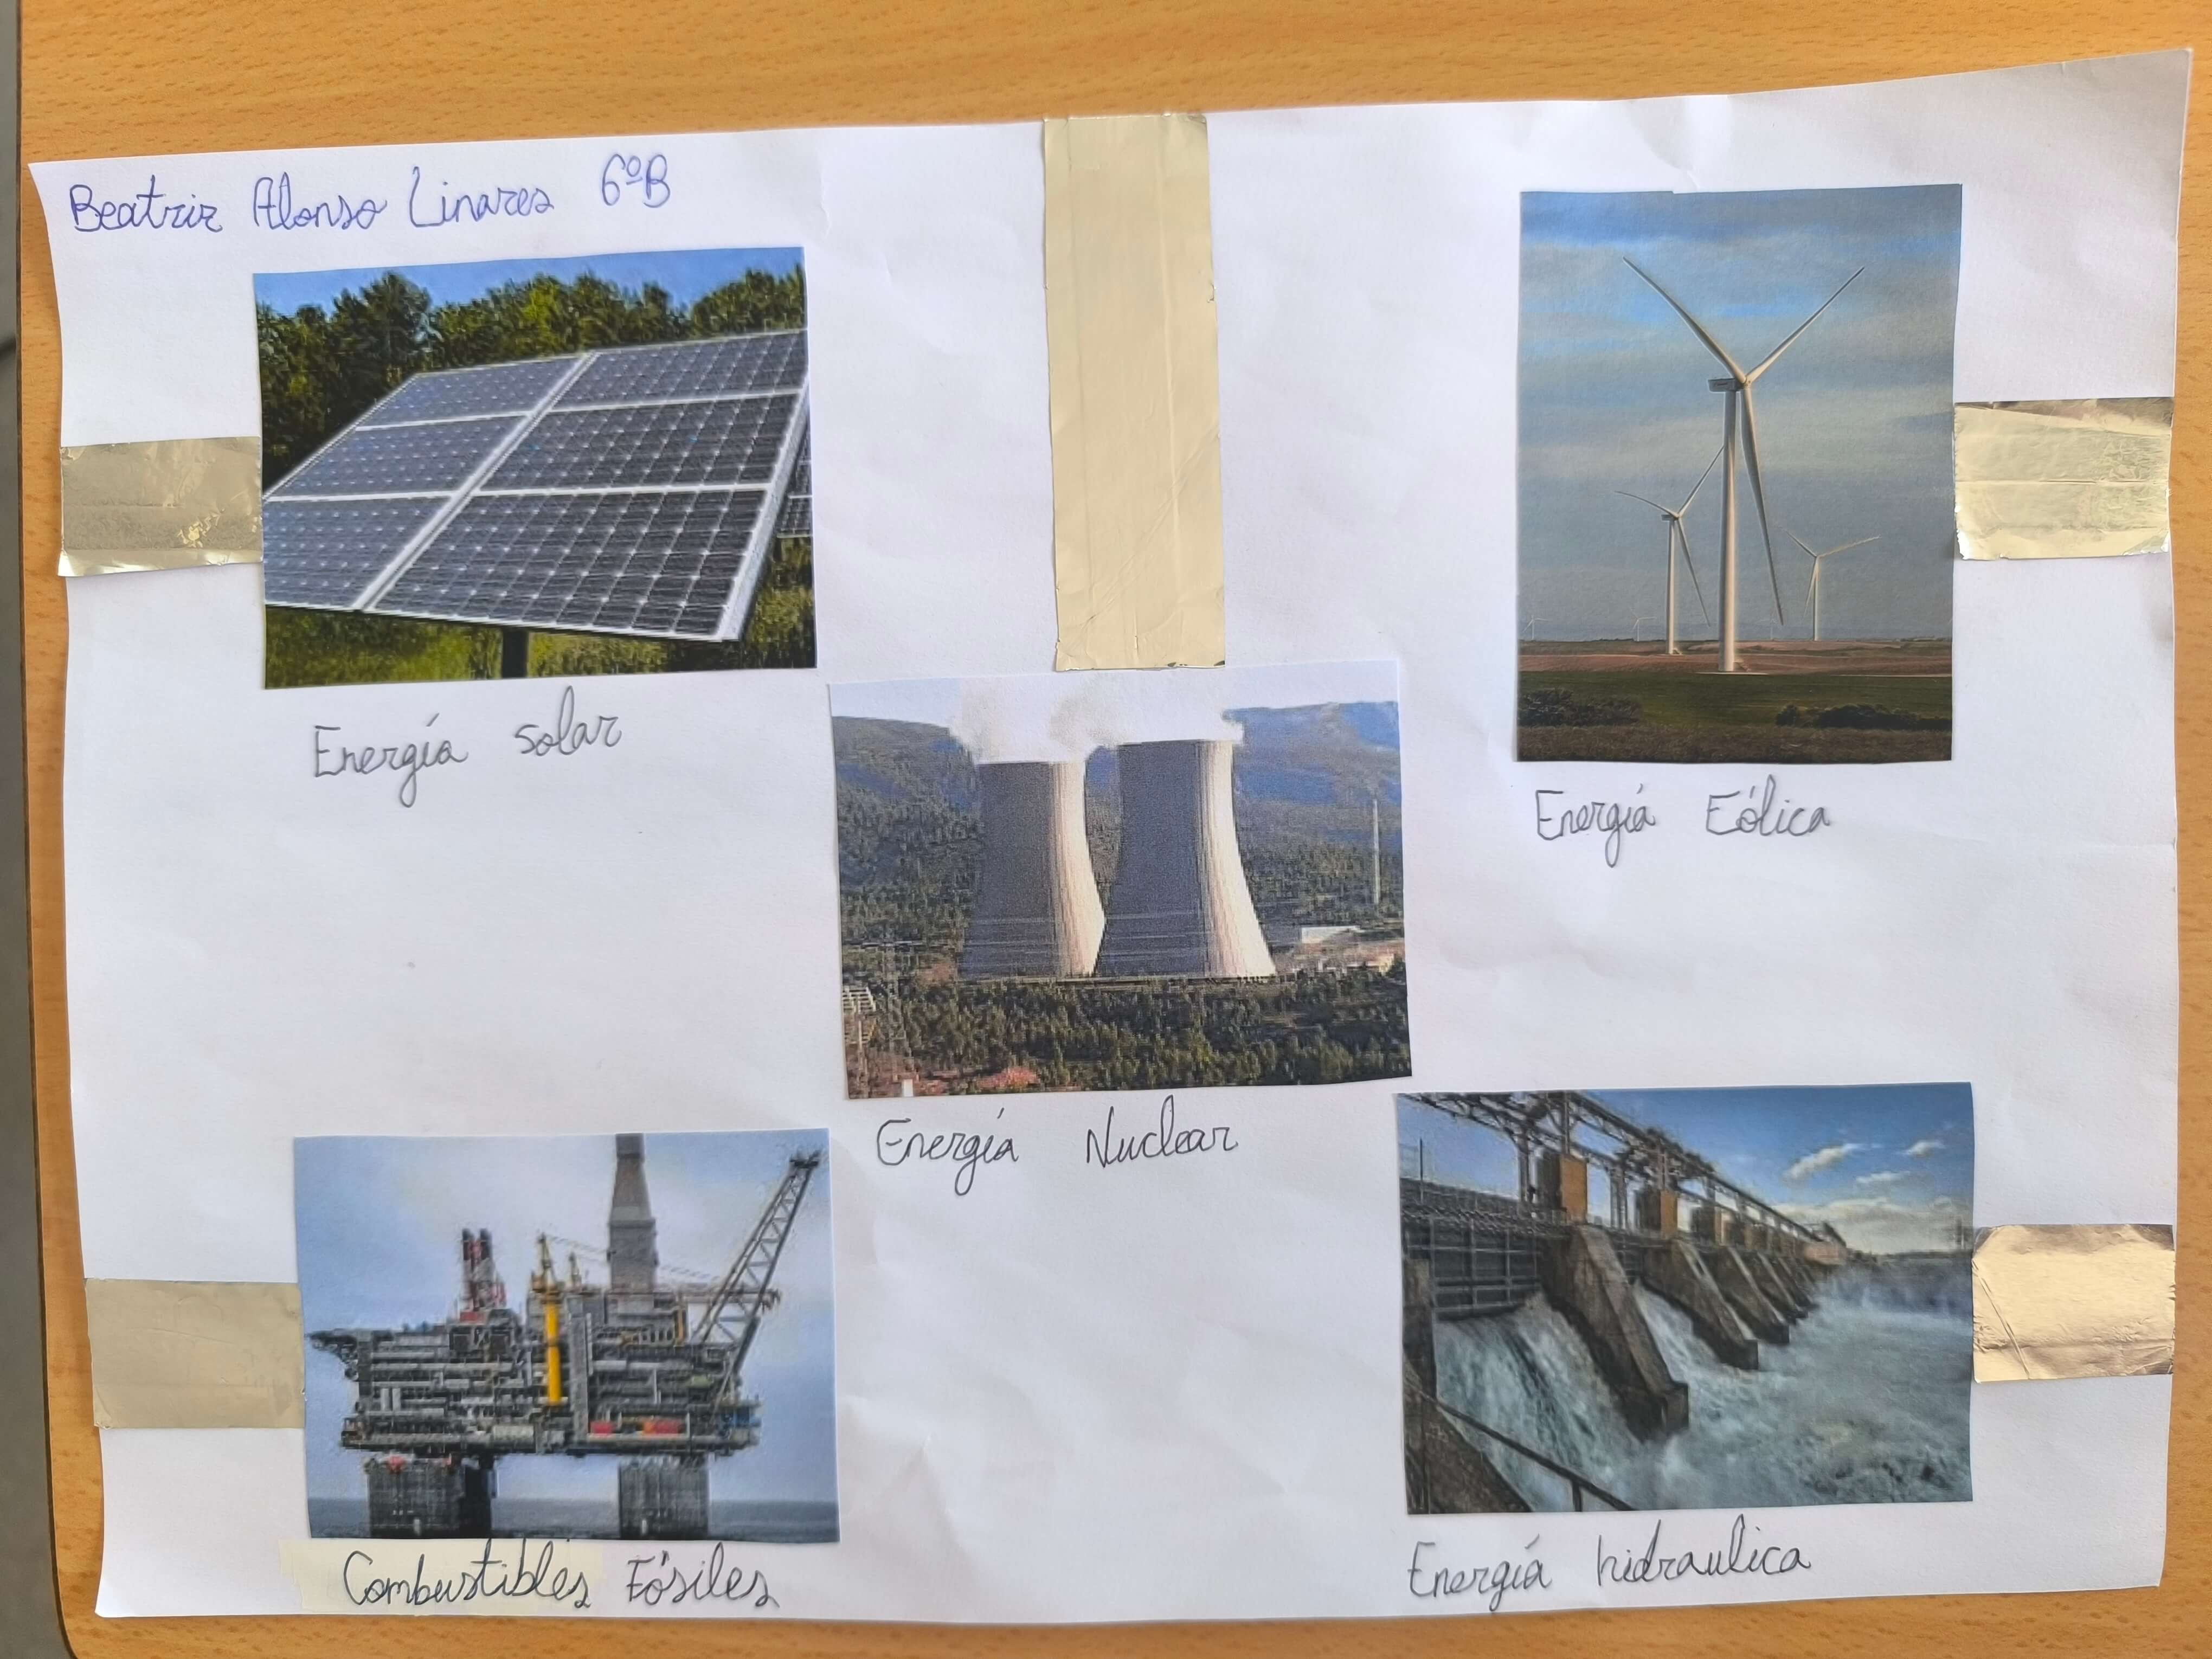 Beatriz Alonso Linares 6ºB
Energía solar
Energía Eólica
Energía Nuclear
Combustibles Fósiles
Energía hidraulica